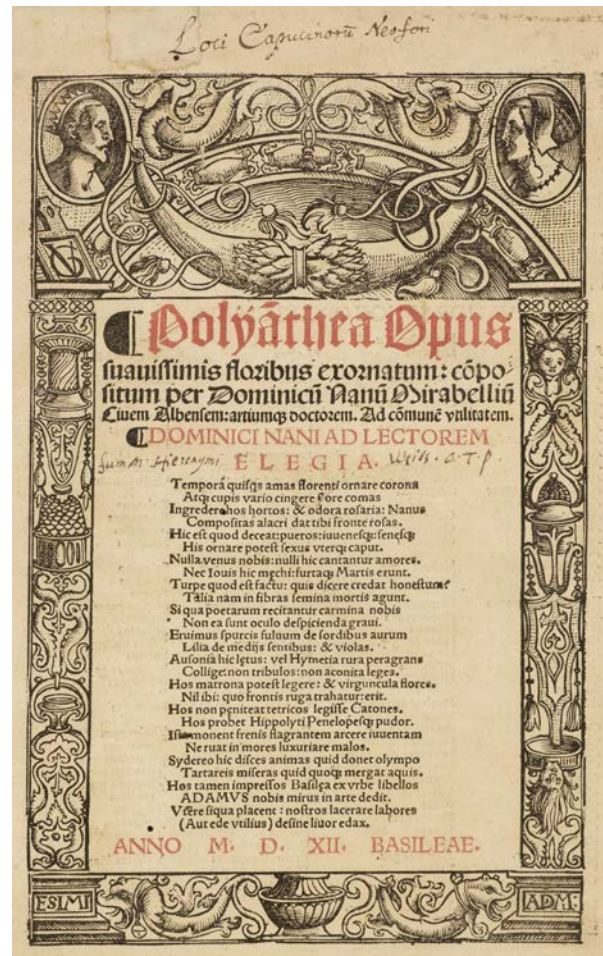 Loci Capucinorū Neofori
¶ Polyāthea Opus
suauissimis floribus exornatum: cōpo-
situm per Dominicū Nanū Mirabelliū
Ciuem Albensem: artiumq; doctorem. Ad cōmunē vtilitatem.
¶ DOMINICI NANI AD LECTOREM
sum M. Hieronymi ELEGIA. Weiss. T. P.
Temporā quisq̃s amas florenti ornare corona
Atq; cupis vario cingere flore comas
Ingredere hos hortos: & odora rosaria: Nanus
Compositas alacri dat tibi fronte rosas.
Hic est quod deceat: pueros: iuuenesq;: senesq;
His ornare potest sexus vterq; caput.
Nulla venus nobis: nulli hic cantantur amores.
Nec Iouis hic mechi: furtaq; Martis erunt.
Turpe quod est factu: quis dicere credat honestum?
Talia nam in fibras semina mortis agunt.
Si qua poetarum recitantur carmina nobis
Non ea sunt oculo despicienda graui.
Eruimus spurcis fuluum de sordibus aurum
Lilia de medijs sentibus: & violas.
Ausonia hic lętus: vel Hymetia rura peragrans
Collige: non tribulos: non aconita leges.
Hos matrona potest legere: & virguncula flores.
Nil ibi: quo frontis ruga trahatur: erit.
Hos non pęniteat tetricos legisse Catones.
Hos probet Hippolyti Penelopesq; pudor.
Isti monent frenis flagrantem arcere iuuentam
Ne ruat in mores luxuriare malos.
Sydereo hic disces animas quid donet olympo
Tartareis miseras quid quoq; mergat aquis.
Hos tamen impressos Basilęa ex vrbe libellos
ADAMVS nobis mirus in arte dedit.
Vtere siqua placent: nostros lacerare labores
(Aut ede vtilius) desine liuor edax.
ANNO M. D. XII. BASILEAE.
ESIMI ADM: